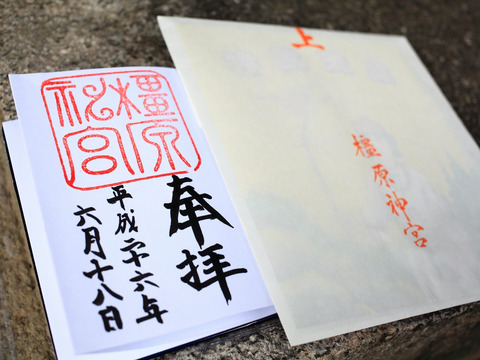 橿原
神宮
奉拝
平成二十六年
六月十八日
上
橿原神宮